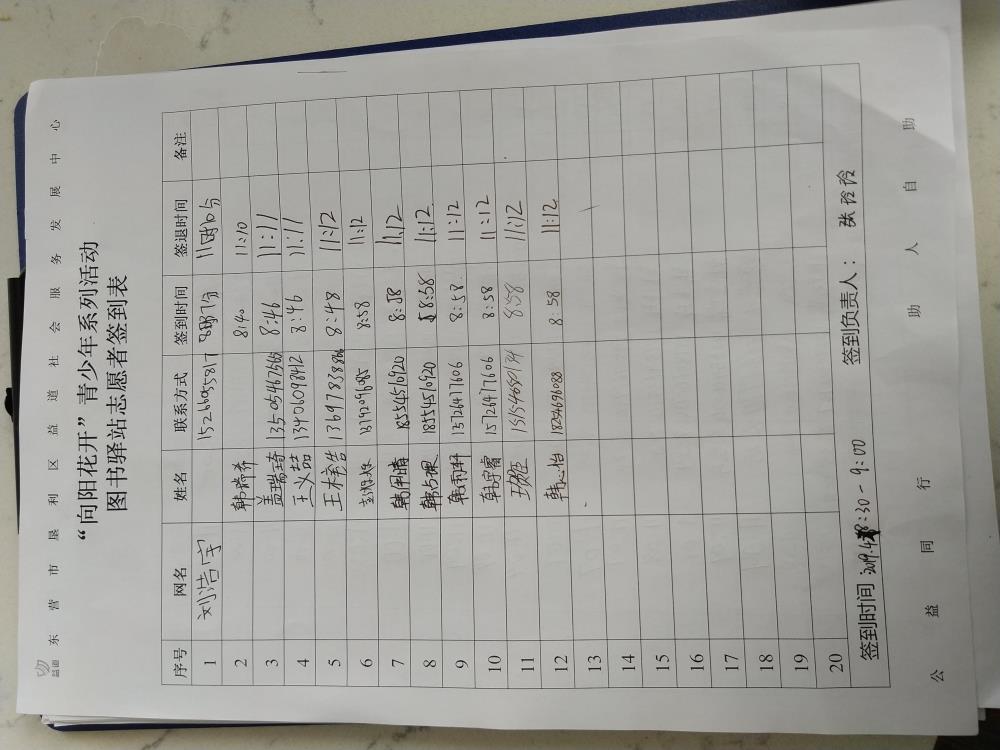 益道
东营市垦利区益道社会服务发展中心
“向阳花开”青少年系列活动
图书驿站志愿者签到表
序号 网名 姓名 联系方式 签到时间 签退时间 备注
1 刘浩宇 15266055817 11时10分
2 韩 8:40 11:10
3 盖瑞琦 13505467565 8:46 11:11
4 王义喆 13406098412 8:46 11:11
5 王木 8:48 11:12
6 8:58 11:12
7 韩 18554516920 8:58 11:12
8 韩 18554516920 8:58 11:12
9 韩雨轩 15726477606 8:58 11:12
10 韩宇睿 15726477606 8:58 11:12
11 8:58 11:12
12 韩心怡 18254696088 8:58 11:12
13
14
15
16
17
18
19
20
签到时间: 8:30-9:00 签到负责人: 张玲玲
公益同行 助人自助